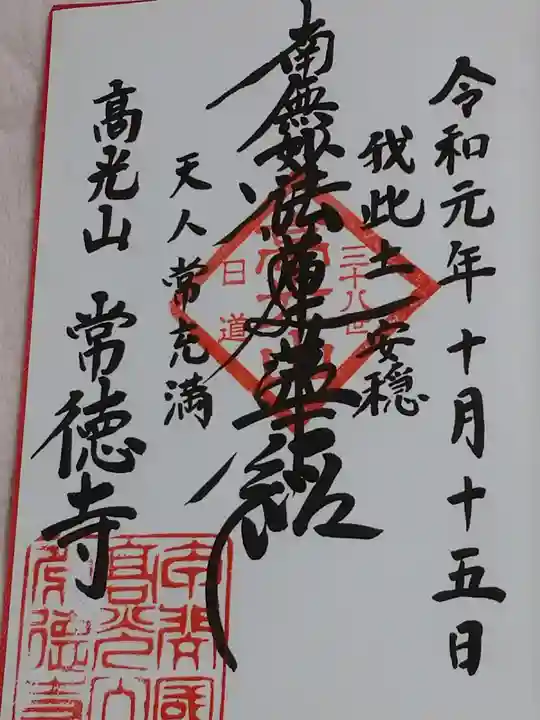 令和元年十月十五日
我此土安穏
南無妙法蓮華経
三十八世
日道
天人常充満
高光山 常徳寺